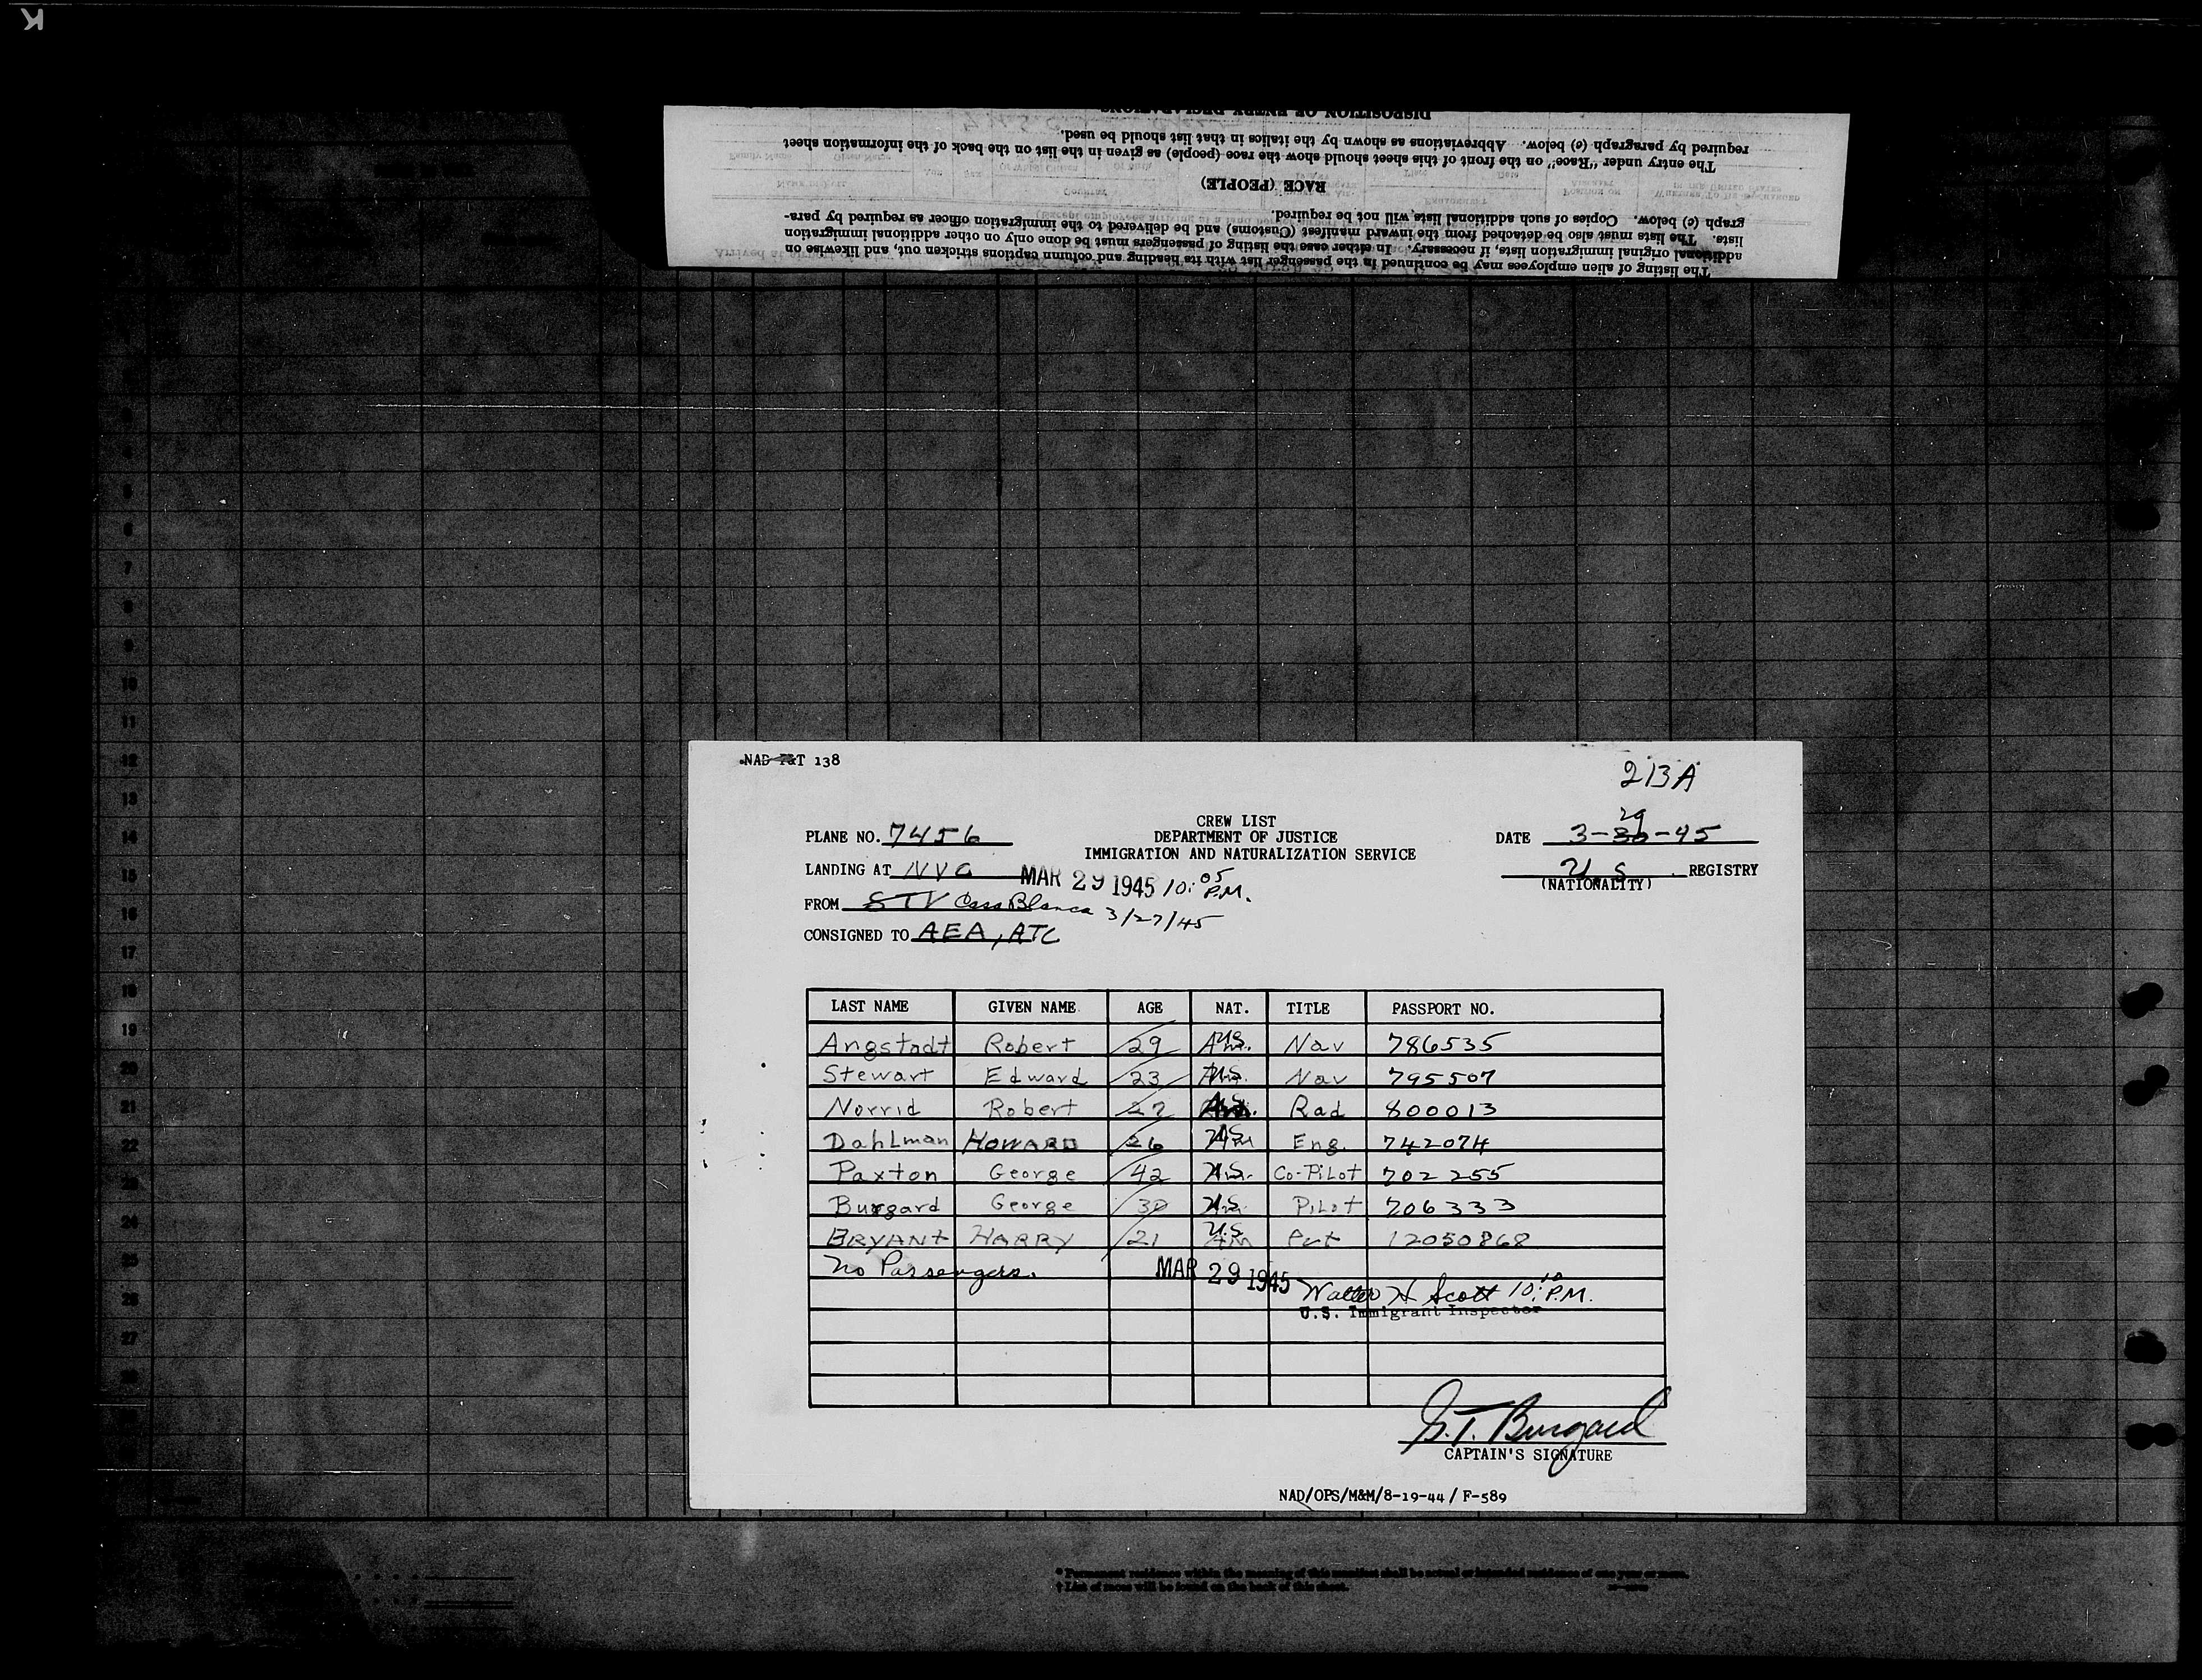 K
DISPOSITION OF ENTRY DECLARATIONS
required by paragraph (e) below. Abbreviations as shown by the italics in that list should be used.
The entry under "Race" on the front of this sheet should show the race (people) as given in the list on the back of the information sheet
RACE (PEOPLE)
graph (e) below. Copies of such additional lists will not be required.
lists. The lists must also be detached from the inward manifest (Customs) and be delivered to the immigration officer as required by para-
additional original immigration lists, if necessary. In either case the listing of passengers must be done only on other additional immigration
The listing of alien employees may be continued in the passenger list with its heading and column captions stricken out, and likewise on
NAD T&T 138
213A
CREW LIST
DEPARTMENT OF JUSTICE
IMMIGRATION AND NATURALIZATION SERVICE
PLANE NO. 7456
DATE 3-30-45
29
LANDING AT NYC MAR 29 1945 10:05 P.M.
U.S. REGISTRY
(NATIONALITY)
FROM STV CasaBlanca 3/27/45
CONSIGNED TO AEA, ATC
LAST NAME GIVEN NAME AGE NAT. TITLE PASSPORT NO.
Angstadt Robert 29 U.S. Nav 786535
Stewart Edward 23 U.S. Nav 795507
Norrid Robert 27 U.S. Rad 800013
Dahlman HOWARD 26 U.S. Eng. 742074
Paxton George 42 U.S. Co-Pilot 702255
Burgard George 30 U.S. Pilot 706333
BRYANT HARRY 21 U.S. Pvt 12050868
No Passengers. MAR 29 1945
Walter H Scott 10:10 P.M.
U.S. Immigrant Inspector
G.T. Burgard
CAPTAIN'S SIGNATURE
NAD/OPS/M&M/8-19-44/ F-589
4
5
6
7
8
9
10
11
12
13
14
15
16
17
18
19
20
21
22
23
24
25
26
27
* Permanent residence within the meaning of this manifest shall be actual or intended residence of one year or more.
† List of races will be found on the back of this sheet.